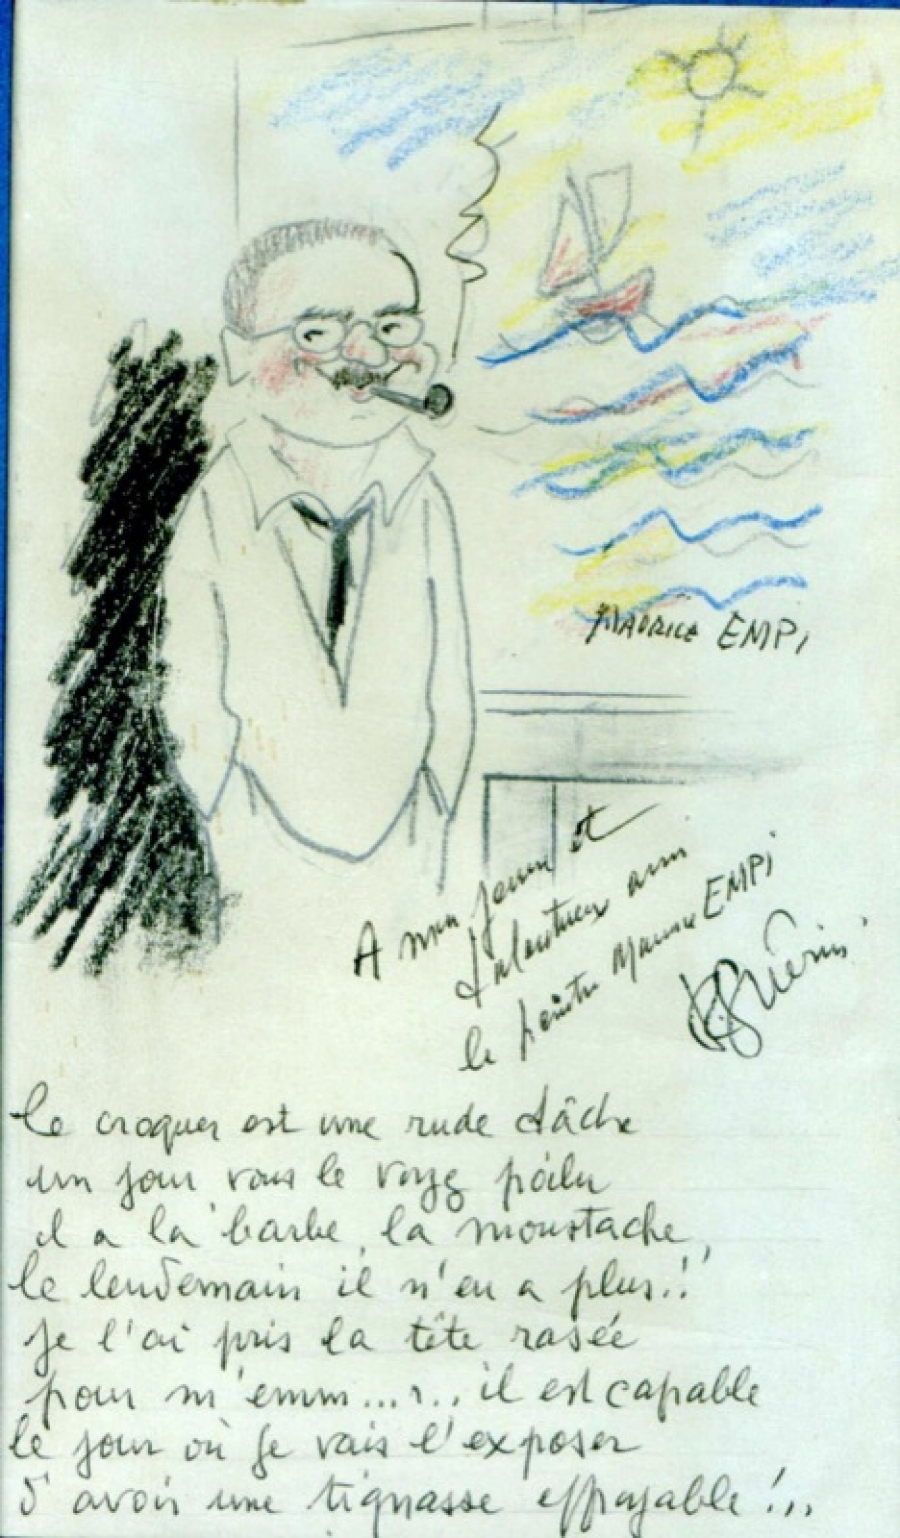 MAURICE EMPI
A mon jeune et
talentueux ami
le peintre Maurice EMPI
Guérin
le croquer est une rude tâche
un jour vous le voyez poilu
il a la barbe, la moustache,
le lendemain il n'en a plus!!
je l'ai pris la tête rasée
pour m'emm...r.. il est capable
le jour où je vais l'exposer
d'avoir une tignasse effroyable!...